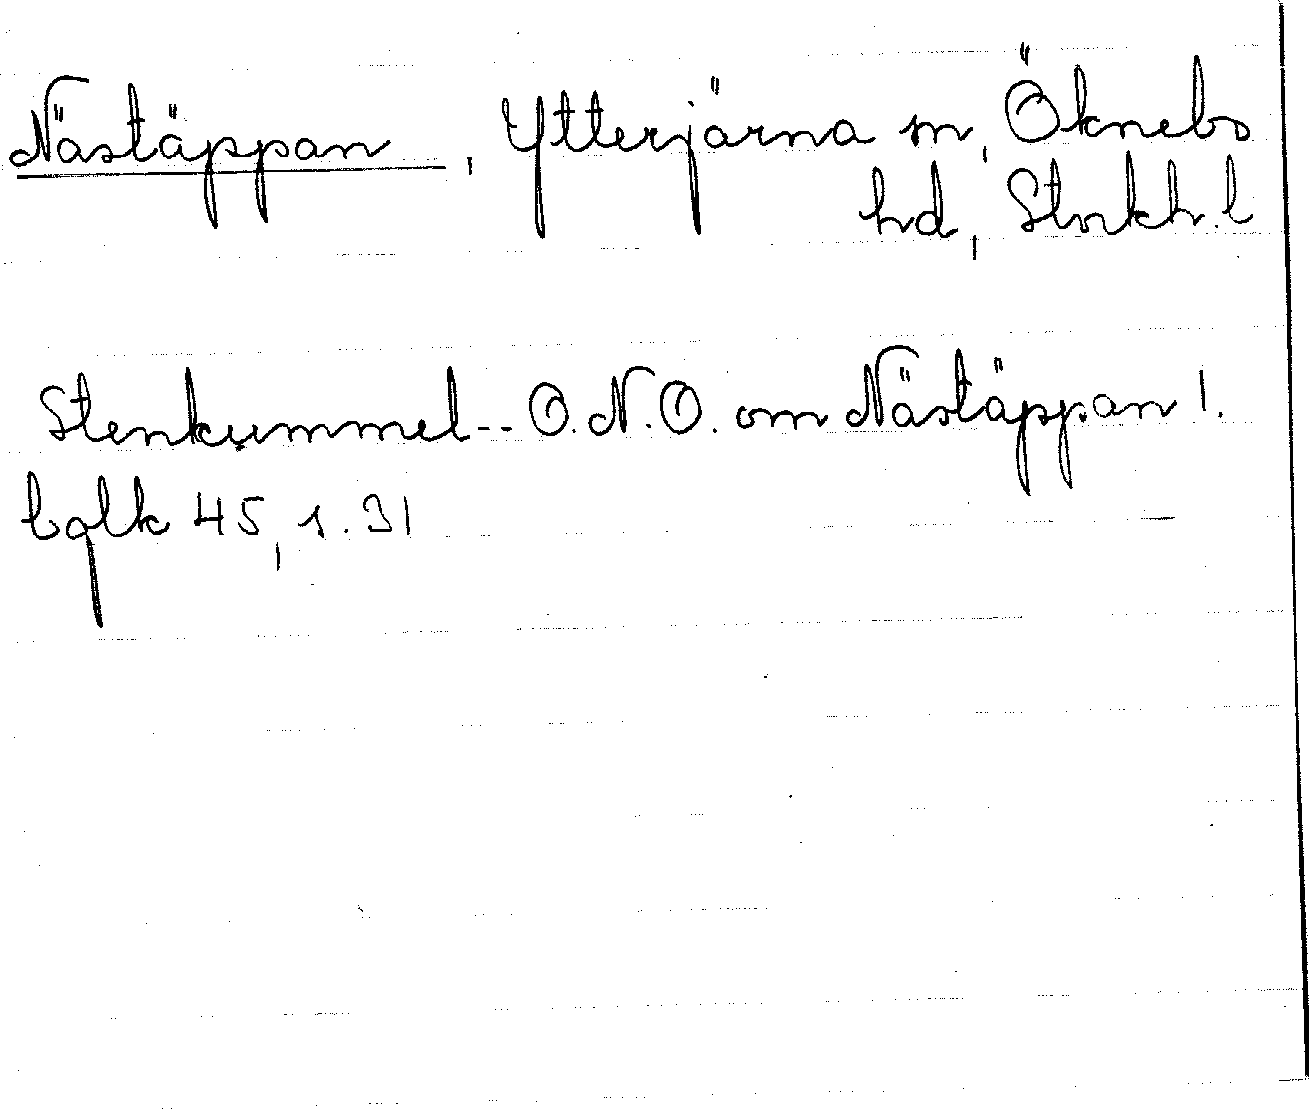 Nästäppan, Ytterjärna sn, Öknebo
hd, Stockh. l
Stenkummel -- O.N.O. om Nästäppan!.
bglk 45, s. 31